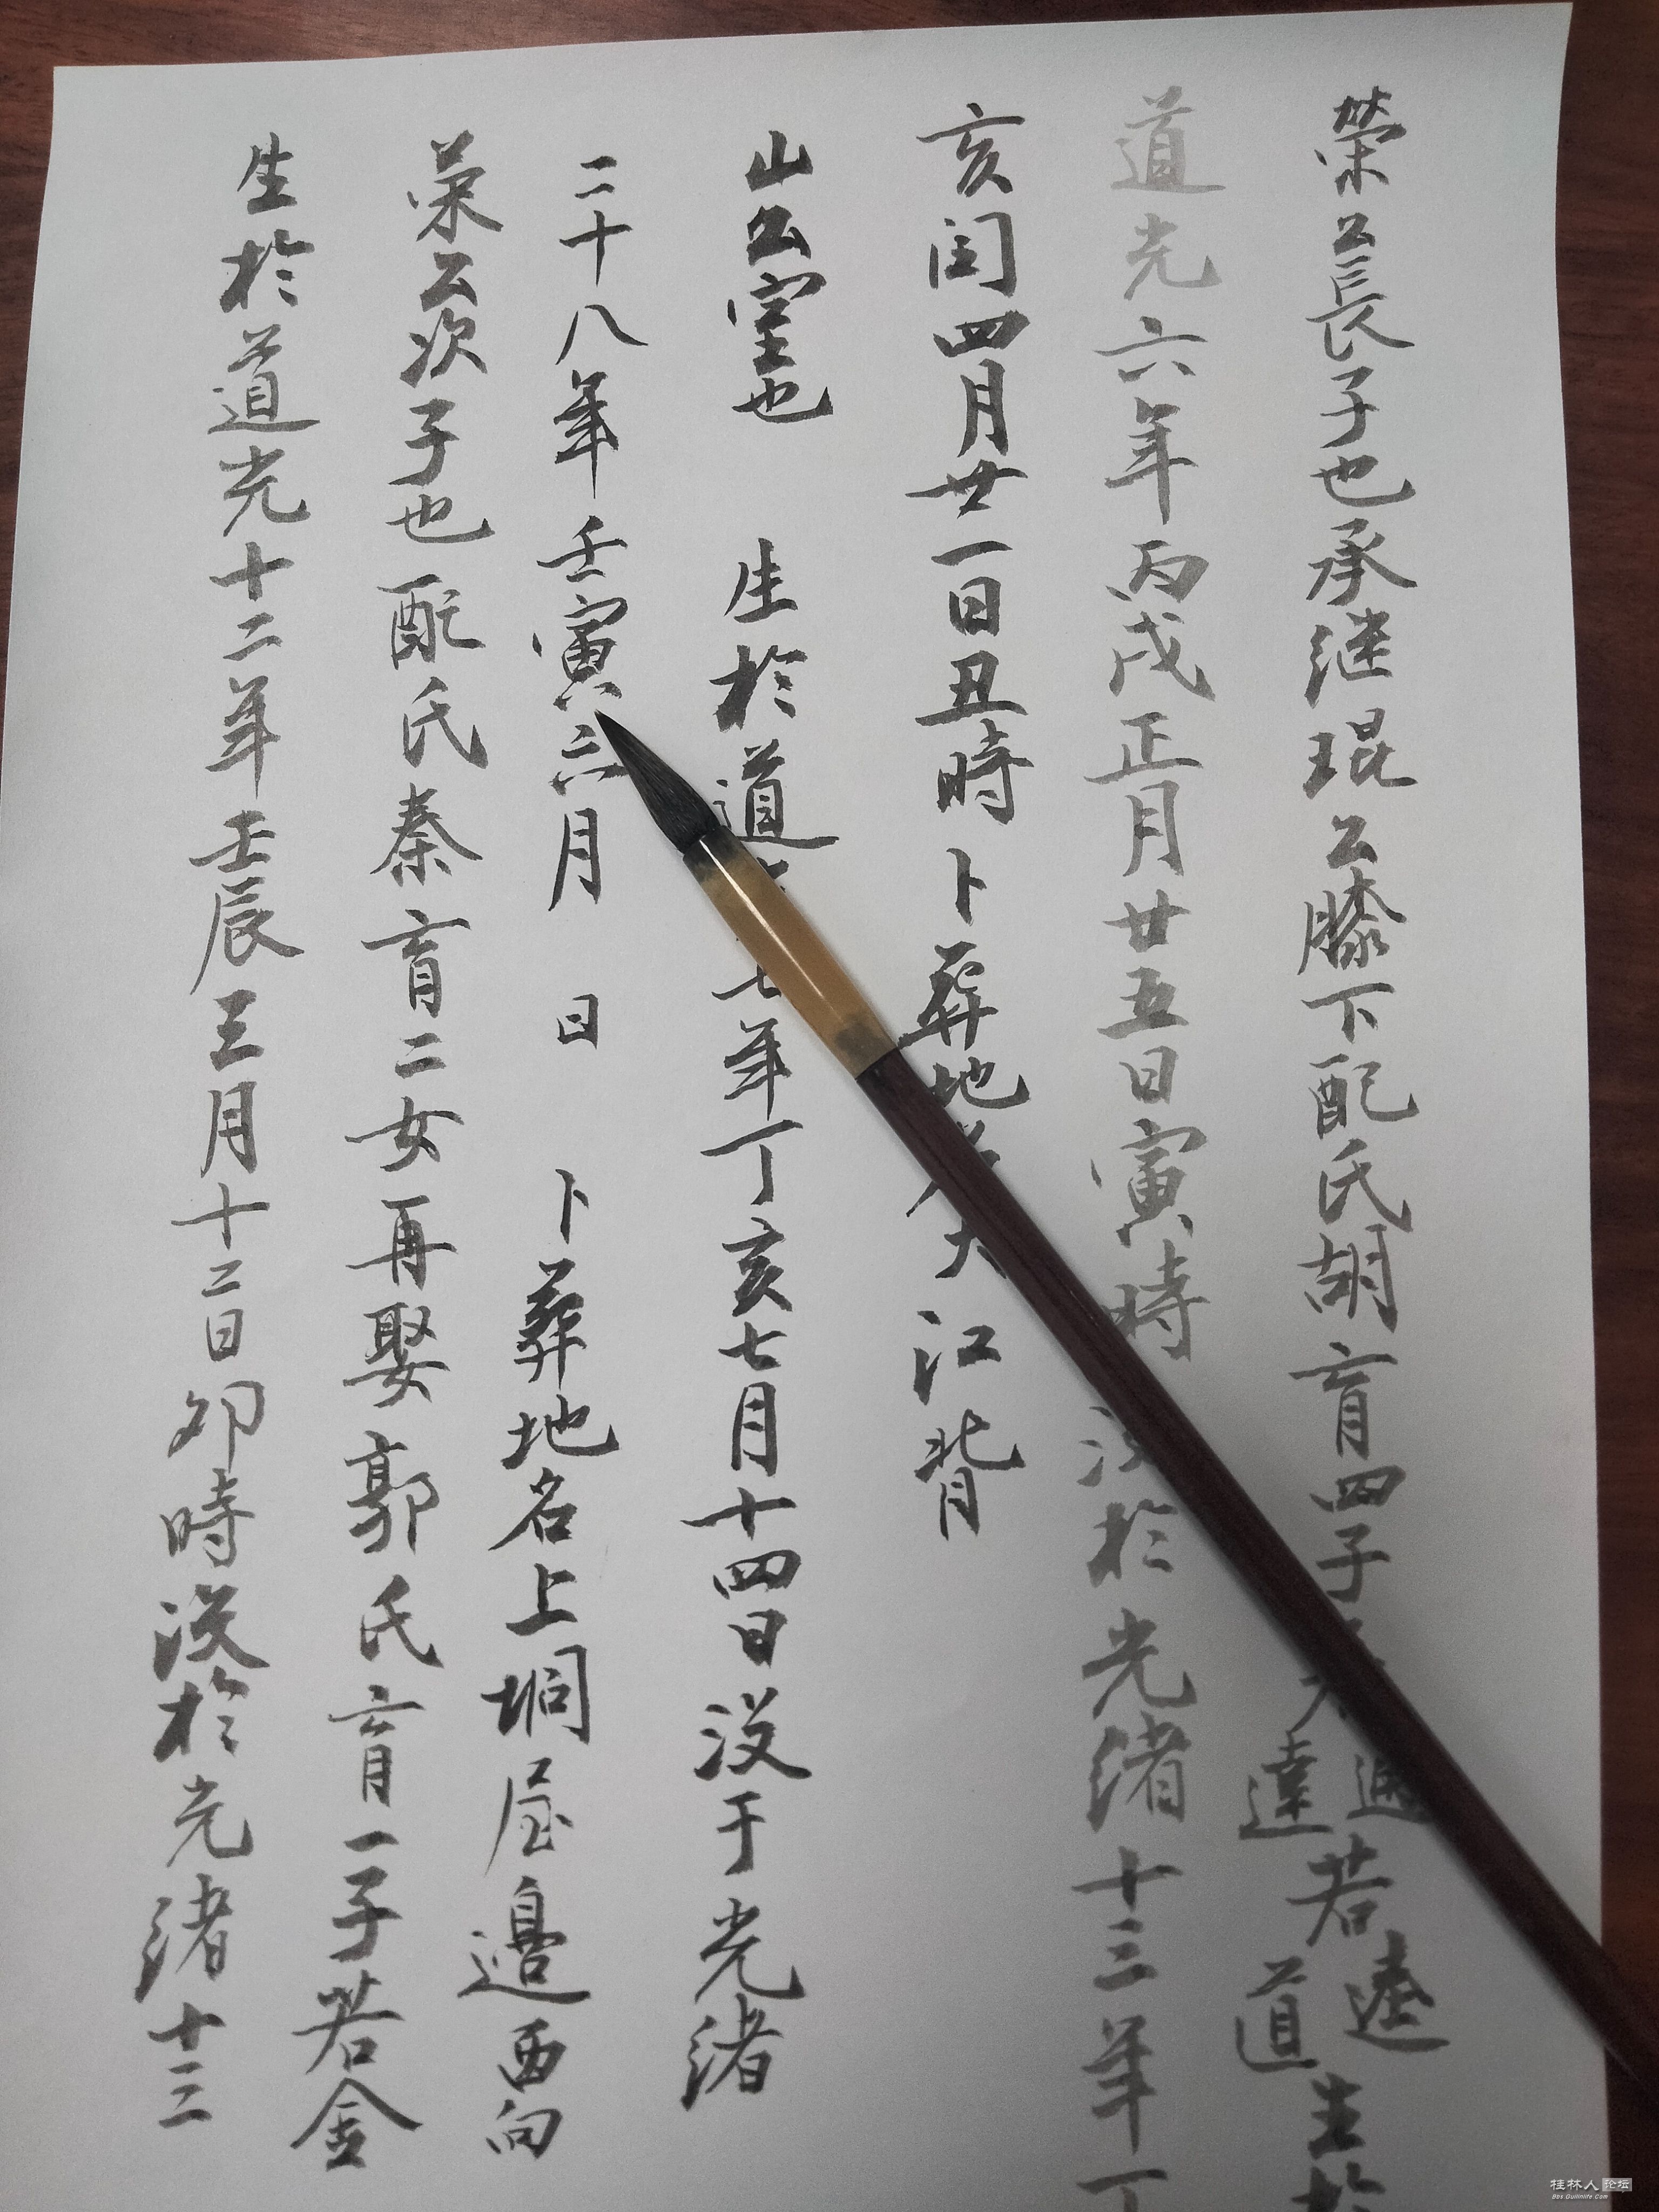 榮公長子也承继琨公膝下配氏胡育四子通達若遠道生於
道光六年丙戌正月廿五日寅時 没於光绪十三年丁
亥闰四月廿一日丑時卜葬地大江背
山公室也 生於道七年丁亥七月十四日没于光绪
二十八年壬寅六月 日 卜葬地名上垌屋邉西向
荣公次子也配氏秦育二女再娶郭氏育一子若金
生於道光十二年壬辰三月十二日卯時没於光绪十三
桂林人论坛
Bbs.Guilinlife.Com